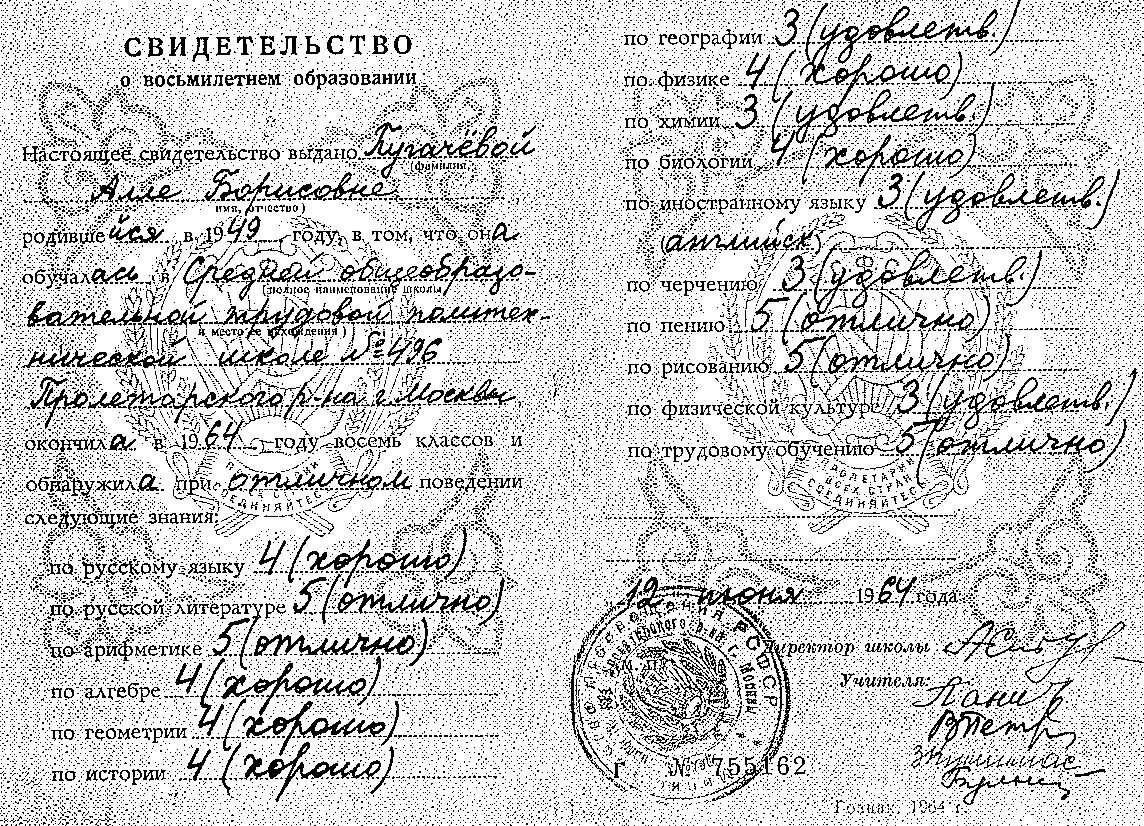 СВИДЕТЕЛЬСТВО
о восьмилетнем образовании
Настоящее свидетельство выдано Пугачёвой
(фамилия,
Алле Борисовне
имя, отчество)
родившейся в 1949 году, в том, что она
обучалась в Средней общеобразо-
(полное наименование школы
вательной трудовой политех-
и место ее нахождения)
нической школе № 496
Пролетарского р-на г. Москвы
окончила в 1964 году восемь классов и
обнаружила при отличном поведении
следующие знания:
по русскому языку 4 (хорошо)
по русской литературе 5 (отлично)
по арифметике 5 (отлично)
по алгебре 4 (хорошо)
по геометрии 4 (хорошо)
по истории 4 (хорошо)
по географии 3 (удовлетв.)
по физике 4 (хорошо)
по химии 3 (удовлетв.)
по биологии 4 (хорошо)
по иностранному языку 3 (удовлетв.)
(английск)
по черчению 3 (удовлетв.)
по пению 5 (отлично)
по рисованию 5 (отлично)
по физической культуре 3 (удовлетв.)
по трудовому обучению 5 (отлично)
ПРОЛЕТАРИИ
ВСЕХ СТРАН
СОЕДИНЯЙТЕСЬ
12 июня 1964 года
Директор школы
Учителя:
М. П.
РСФСР
Г № 755162
Гознак, 1964 г.